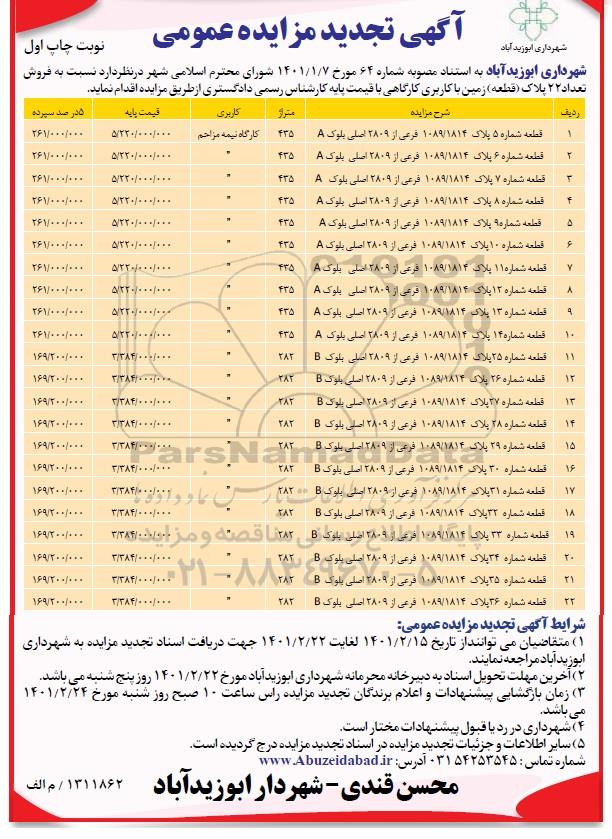 شهرداری ابوزیدآباد
آگهی تجدید مزایده عمومی
نوبت چاپ اول
شهرداری ابوزیدآباد به استناد مصوبه شماره ۶۴ مورخ ۱۴۰۱/۱/۷ شورای محترم اسلامی شهر درنظردارد نسبت به فروش
تعداد۲۲ پلاک (قطعه) زمین با کاربری کارگاهی با قیمت پایه کارشناس رسمی دادگستری ازطریق مزایده اقدام نماید.
ردیف شرح مزایده متراژ کاربری قیمت پایه ۵در صد سپرده
۱ قطعه شماره ۵ پلاک ۱۰۸۹/۱۸۱۴ فرعی از ۲۸۰۹ اصلی بلوک A ۴۳۵ کارگاه نیمه مزاحم ۵/۲۲۰/۰۰۰/۰۰۰ ۲۶۱/۰۰۰/۰۰۰
۲ قطعه شماره ۶ پلاک ۱۰۸۹/۱۸۱۴ فرعی از ۲۸۰۹ اصلی بلوک A ۴۳۵ " ۵/۲۲۰/۰۰۰/۰۰۰ ۲۶۱/۰۰۰/۰۰۰
۳ قطعه شماره ۷ پلاک ۱۰۸۹/۱۸۱۴ فرعی از ۲۸۰۹ اصلی بلوک A ۴۳۵ " ۵/۲۲۰/۰۰۰/۰۰۰ ۲۶۱/۰۰۰/۰۰۰
۴ قطعه شماره ۸ پلاک ۱۰۸۹/۱۸۱۴ فرعی از ۲۸۰۹ اصلی بلوک A ۴۳۵ " ۵/۲۲۰/۰۰۰/۰۰۰ ۲۶۱/۰۰۰/۰۰۰
۵ قطعه شماره۹ پلاک ۱۰۸۹/۱۸۱۴ فرعی از ۲۸۰۹ اصلی بلوک A ۴۳۵ " ۵/۲۲۰/۰۰۰/۰۰۰ ۲۶۱/۰۰۰/۰۰۰
۶ قطعه شماره ۱۰پلاک ۱۰۸۹/۱۸۱۴ فرعی از ۲۸۰۹ اصلی بلوک A ۴۳۵ " ۵/۲۲۰/۰۰۰/۰۰۰ ۲۶۱/۰۰۰/۰۰۰
۷ قطعه شماره۱۱ پلاک ۱۰۸۹/۱۸۱۴ فرعی از ۲۸۰۹ اصلی بلوک A ۴۳۵ " ۵/۲۲۰/۰۰۰/۰۰۰ ۲۶۱/۰۰۰/۰۰۰
۸ قطعه شماره ۱۲پلاک ۱۰۸۹/۱۸۱۴ فرعی از ۲۸۰۹ اصلی بلوک A ۴۳۵ " ۵/۲۲۰/۰۰۰/۰۰۰ ۲۶۱/۰۰۰/۰۰۰
۹ قطعه شماره ۱۳ پلاک ۱۰۸۹/۱۸۱۴ فرعی از ۲۸۰۹ اصلی بلوک A ۴۳۵ " ۵/۲۲۰/۰۰۰/۰۰۰ ۲۶۱/۰۰۰/۰۰۰
۱۰ قطعه شماره۱۴ پلاک ۱۰۸۹/۱۸۱۴ فرعی از ۲۸۰۹ اصلی بلوک A ۴۳۵ " ۵/۲۲۰/۰۰۰/۰۰۰ ۲۶۱/۰۰۰/۰۰۰
۱۱ قطعه شماره ۲۵پلاک ۱۰۸۹/۱۸۱۴ فرعی از ۲۸۰۹ اصلی بلوک B ۲۸۲ " ۳/۳۸۴/۰۰۰/۰۰۰ ۱۶۹/۲۰۰/۰۰۰
۱۲ قطعه شماره ۲۶ پلاک ۱۰۸۹/۱۸۱۴ فرعی از ۲۸۰۹ اصلی بلوک B ۲۸۲ " ۳/۳۸۴/۰۰۰/۰۰۰ ۱۶۹/۲۰۰/۰۰۰
۱۳ قطعه شماره ۲۷پلاک ۱۰۸۹/۱۸۱۴ فرعی از ۲۸۰۹ اصلی بلوک B ۲۸۲ " ۳/۳۸۴/۰۰۰/۰۰۰ ۱۶۹/۲۰۰/۰۰۰
۱۴ قطعه شماره ۲۸ پلاک ۱۰۸۹/۱۸۱۴ فرعی از ۲۸۰۹ اصلی بلوک B ۲۸۲ " ۳/۳۸۴/۰۰۰/۰۰۰ ۱۶۹/۲۰۰/۰۰۰
۱۵ قطعه شماره ۲۹ پلاک ۱۰۸۹/۱۸۱۴ فرعی از ۲۸۰۹ اصلی بلوک B ۲۸۲ " ۳/۳۸۴/۰۰۰/۰۰۰ ۱۶۹/۲۰۰/۰۰۰
۱۶ قطعه شماره ۳۰ پلاک ۱۰۸۹/۱۸۱۴ فرعی از ۲۸۰۹ اصلی بلوک B ۲۸۲ " ۳/۳۸۴/۰۰۰/۰۰۰ ۱۶۹/۲۰۰/۰۰۰
۱۷ قطعه شماره ۳۱پلاک ۱۰۸۹/۱۸۱۴ فرعی از ۲۸۰۹ اصلی بلوک B ۲۸۲ " ۳/۳۸۴/۰۰۰/۰۰۰ ۱۶۹/۲۰۰/۰۰۰
۱۸ قطعه شماره ۳۲پلاک ۱۰۸۹/۱۸۱۴ فرعی از ۲۸۰۹ اصلی بلوک B ۲۸۲ " ۳/۳۸۴/۰۰۰/۰۰۰ ۱۶۹/۲۰۰/۰۰۰
۱۹ قطعه شماره ۳۳ پلاک ۱۰۸۹/۱۸۱۴ فرعی از ۲۸۰۹ اصلی بلوک B ۲۸۲ " ۳/۳۸۴/۰۰۰/۰۰۰ ۱۶۹/۲۰۰/۰۰۰
۲۰ قطعه شماره ۳۴پلاک ۱۰۸۹/۱۸۱۴ فرعی از ۲۸۰۹ اصلی بلوک B ۲۸۲ " ۳/۳۸۴/۰۰۰/۰۰۰ ۱۶۹/۲۰۰/۰۰۰
۲۱ قطعه شماره ۳۵پلاک ۱۰۸۹/۱۸۱۴ فرعی از ۲۸۰۹ اصلی بلوک B ۲۸۲ " ۳/۳۸۴/۰۰۰/۰۰۰ ۱۶۹/۲۰۰/۰۰۰
۲۲ قطعه شماره ۳۶پلاک ۱۰۸۹/۱۸۱۴ فرعی از ۲۸۰۹ اصلی بلوک B ۲۸۲ " ۳/۳۸۴/۰۰۰/۰۰۰ ۱۶۹/۲۰۰/۰۰۰
ParsNamadData
پایگاه اطلاع رسانی مناقصه و مزایده
۰۲۱-۸۸۳۴۹۶۷۰-۵
شرایط آگهی تجدید مزایده عمومی:
۱) متقاضیان می تواننداز تاریخ ۱۴۰۱/۲/۱۵ لغایت ۱۴۰۱/۲/۲۲ جهت دریافت اسناد تجدید مزایده به شهرداری
ابوزیدآباد مراجعه نمایند.
۲)آخرین مهلت تحویل اسناد به دبیرخانه محرمانه شهرداری ابوزیدآباد مورخ ۱۴۰۱/۲/۲۲ روز پنج شنبه می باشد.
۳) زمان بازگشایی پیشنهادات و اعلام برندگان تجدید مزایده راس ساعت ۱۰ صبح روز شنبه مورخ ۱۴۰۱/۲/۲۴
می باشد.
۴) شهرداری در رد یا قبول پیشنهادات مختار است.
۵) سایر اطلاعات و جزئیات تجدید مزایده در اسناد تجدید مزایده درج گردیده است.
شماره تماس: ۵۴۲۵۳۵۴۵ ۰۳۱ آدرس: www.Abuzeidabad.ir
محسن قندی - شهردار ابوزیدآباد
۱۳۱۱۸۶۲ / م الف